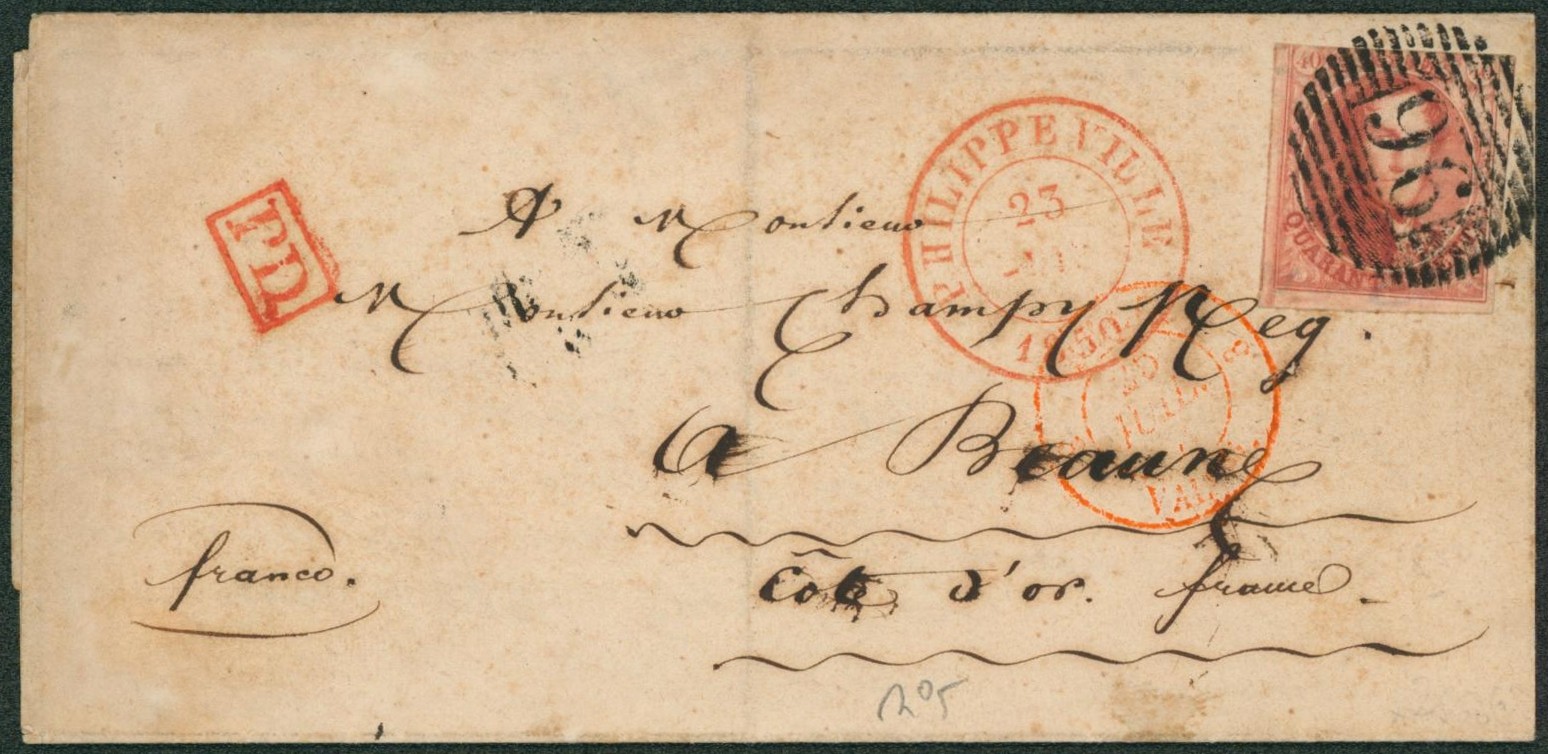 PD
A Monsieur
Monsieur Champy Neg.
a Beaune
côte d'or. france
franco.
PHILIPPEVILLE
23
1850
QUARANTE
40
96
25
JUIN
VAL
205